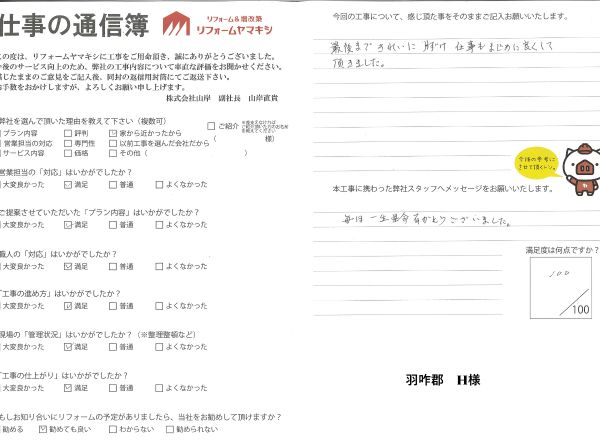 仕事の通信簿
リフォーム&増改築
リフォームヤマキシ
の度は、リフォームヤマキシに工事をご用命頂き、誠にありがとうございました。
後のサービス向上のため、弊社の工事内容について率直な評価をお聞かせください。
じたままのご意見をご記入後、同封の返信用封筒にてご返送下さい。
手数をおかけしますが、よろしくお願い申し上げます。
株式会社山岸 副社長 山岸直貴
弊社を選んで頂いた理由を教えて下さい(複数可)
プラン内容 □評判 ☑家から近かったから
営業担当の対応 □専門性 □以前工事を選んだ会社だから
サービス内容 □価格 □その他( )
□ご紹介
( 様)
営業担当の「対応」はいかがでしたか?
大変良かった ☑満足 □普通 □よくなかった
ご提案させていただいた「プラン内容」はいかがでしたか?
大変良かった ☑満足 □普通 □よくなかった
職人の「対応」はいかがでしたか?
大変良かった ☑満足 □普通 □よくなかった
「工事の進め方」はいかがでしたか?
大変良かった ☑満足 □普通 □よくなかった
現場の「管理状況」はいかがでしたか?(※整理整頓など)
大変良かった ☑満足 □普通 □よくなかった
「工事の仕上がり」はいかがでしたか?
大変良かった ☑満足 □普通 □よくなかった
もしお知り合いにリフォームの予定がありましたら、当社をお勧めして頂けますか?
勧める ☑勧めても良い □わからない □勧められない
今回の工事について、感じた事をそのままご記入お願いいたします。
最後まできれいに 仕事もまじめに良くして
頂きました。
今後の参考に
させて頂くトン。
本工事に携わった弊社スタッフへメッセージをお願いいたします。
毎日一生懸命ありがとうございました。
満足度は何点ですか?
100
/100
羽咋郡 H様